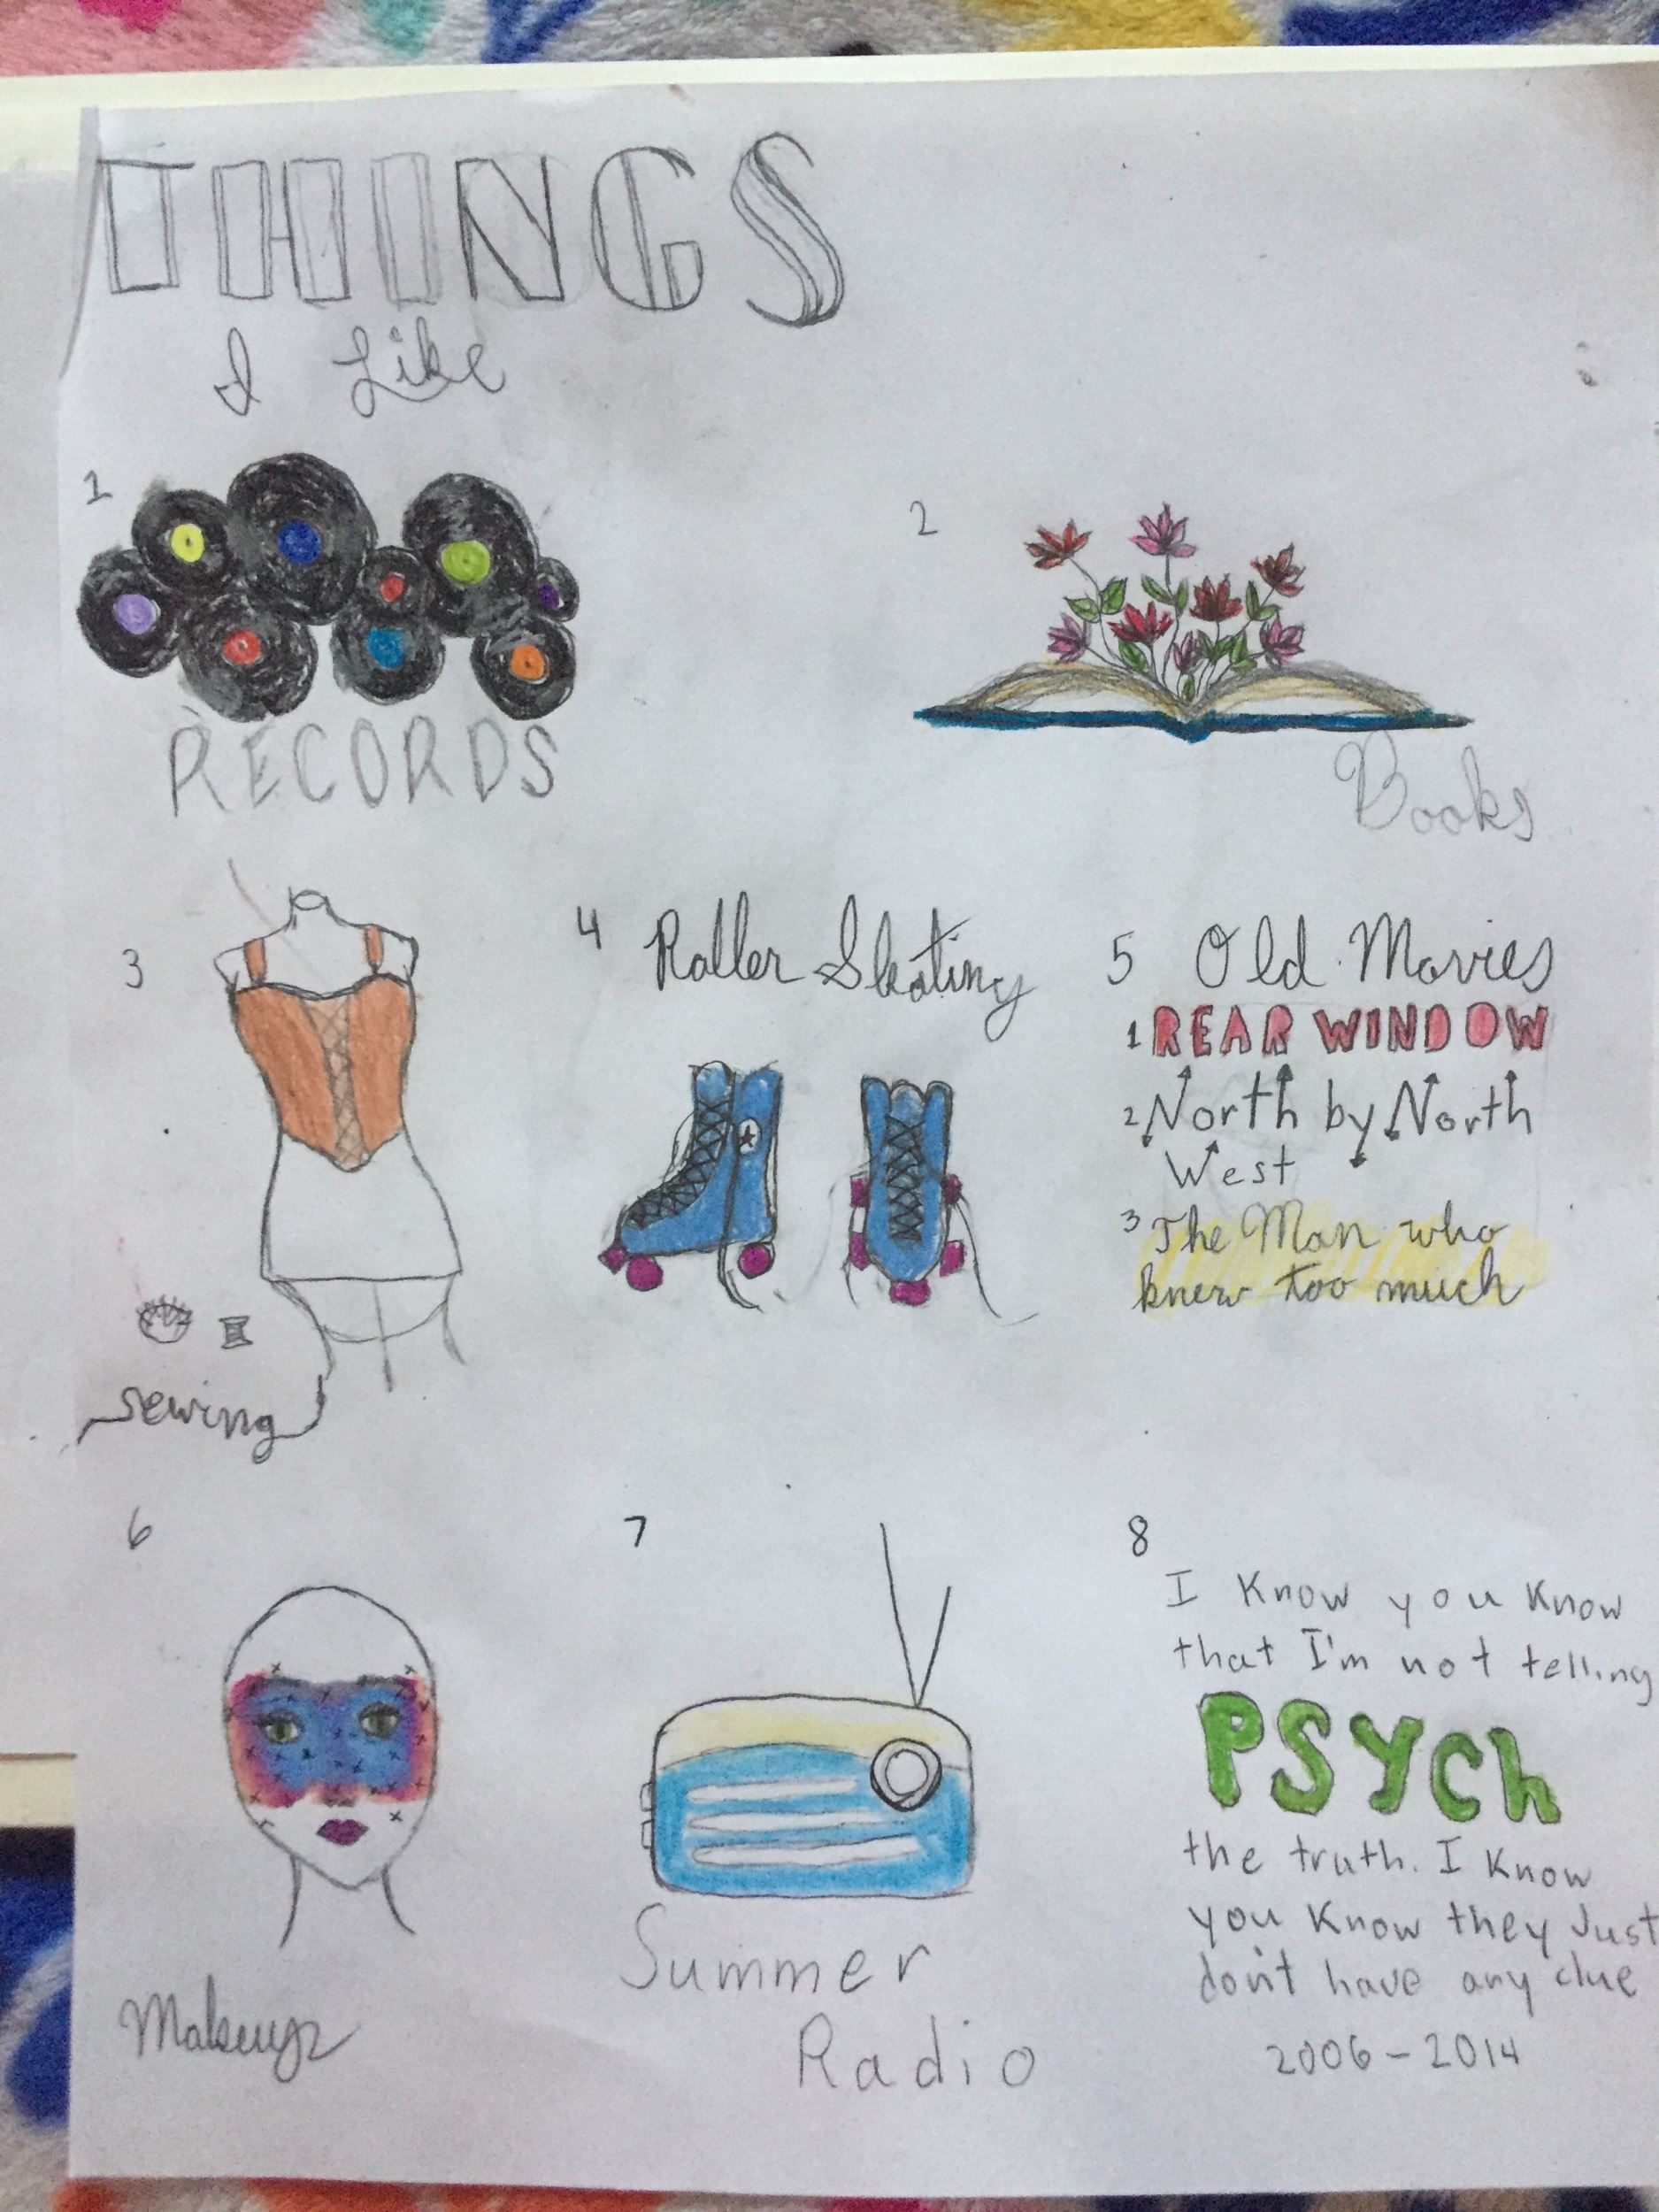 THINGS
I Like
1
RECORDS
2
Books
3
sewing
4 Roller Skating
5 Old Movies
1 REAR WINDOW
2 North by North
West
3 The Man who
knew too much
6
Makeup
7
Summer
Radio
8
I know you know
that I'm not telling
PSYch
the truth. I know
you know they Just
don't have any clue
2006-2014